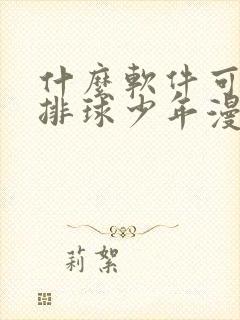 什麼軟件可
排球少年漫
莉絮